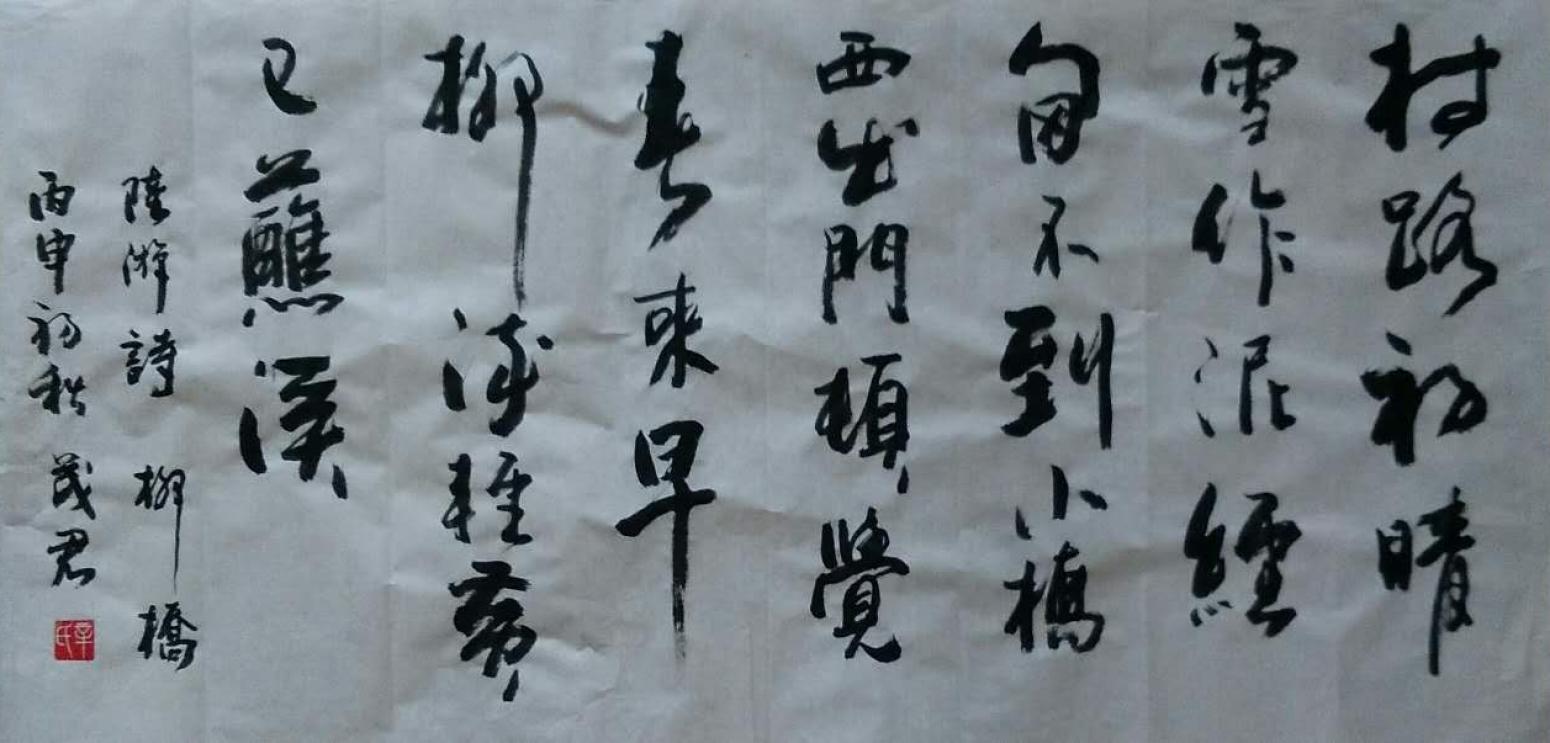 村路初晴
雪作泥經
旬不到小橋
西出門頓覺
春來早
柳染輕黃
已蘸溪
陸游詩 柳橋
丙申初秋 茂君
辛氏